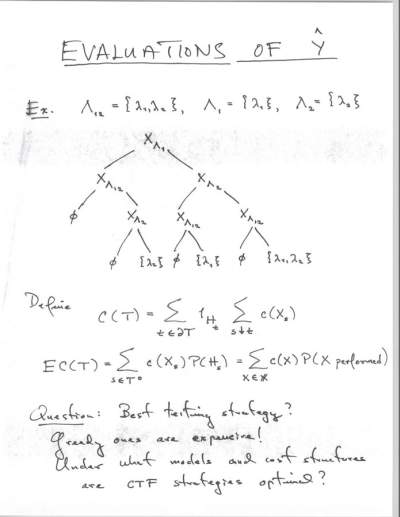 EVALUATIONS OF Ŷ
Ex. Λ₁₂ = {λ₁,λ₂}, Λ₁ = {λ₁}, Λ₂ = {λ₂}
X_Λ₁
X_Λ₁₂ X_Λ₂
ϕ X_Λ₂ X_Λ₁₂ X_Λ₁₂
ϕ {λ₂} ϕ {λ₁} ϕ {λ₁,λ₂}
Define
C(T) = ∑_{t∈∂T} 1_{H_t} ∑_{s↓t} c(X_s)
EC(T) = ∑_{s∈T°} c(X_s) P(H_s) = ∑_{X∈𝒳} c(X) P(X performed)
Question: Best testing strategy?
Greedy ones are expensive!
Under what models and cost structures
are CTF strategies optimal?